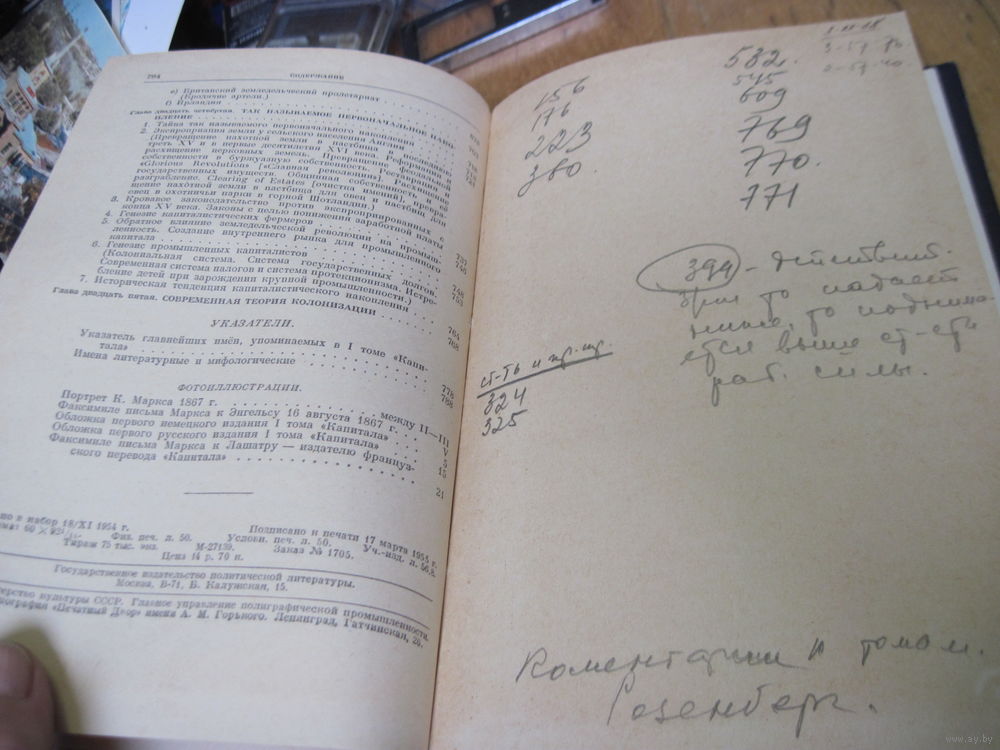 794
СОДЕРЖАНИЕ
е) Британский земледельческий пролетариат
(Бродячие артели.)
f) Ирландия
Глава двадцать четвёртая. ТАК НАЗЫВАЕМОЕ ПЕРВОНАЧАЛЬНОЕ НАКО-
ПЛЕНИЕ
1. Тайна так называемого первоначального накопления
2. Экспроприация земли у сельского населения Англии
(Превращение пахотной земли в пастбища в последнюю
треть XV и в первые десятилетия XVI века. Реформация и
расхищение церковных земель. Превращение феодальной
собственности в буржуазную собственность. Реставрация.
«Glorious Revolution» [«Славная революция»]. Расхищение
государственных имуществ. Общинная собственность и её
разграбление. Clearing of Estates [очистка имений], превра-
щение пахотной земли в пастбища для овец и пастбищ для
овец в охотничьи парки в горной Шотландии.)
3. Кровавое законодательство против экспроприированных с
конца XV века. Законы с целью понижения заработной платы
4. Генезис капиталистических фермеров
5. Обратное влияние земледельческой революции на промыш-
ленность. Создание внутреннего рынка для промышленного
капитала
6. Генезис промышленных капиталистов
(Колониальная система. Система государственных долгов.
Современная система налогов и система протекционизма. Истре-
бление детей при зарождении крупной промышленности.)
7. Историческая тенденция капиталистического накопления
Глава двадцать пятая. СОВРЕМЕННАЯ ТЕОРИЯ КОЛОНИЗАЦИИ
УКАЗАТЕЛИ.
Указатель главнейших имён, упоминаемых в I томе «Капи-
тала» 776
Имена литературные и мифологические 788
ФОТОИЛЛЮСТРАЦИИ.
Портрет К. Маркса 1867 г. между II—III
Факсимиле письма Маркса к Энгельсу 16 августа 1867 г. V
Обложка первого немецкого издания I тома «Капитала» 5
Обложка первого русского издания I тома «Капитала» 15
Факсимиле письма Маркса к Лашатру — издателю француз-
ского перевода «Капитала» 21
но в набор 18/XI 1954 г.
Подписано к печати 17 марта 1955 г.
Физ. печ. л. 50. Условн. печ. л. 50. Уч.-изд. л. 56,8.
Тираж 75 тыс. экз. М-27139. Заказ № 1705.
Цена 14 р. 70 к.
Государственное издательство политической литературы.
Москва, В-71, Б. Калужская, 15.
ерство культуры СССР. Главное управление полиграфической промышленности.
ография «Печатный Двор» имени А. М. Горького. Ленинград, Гатчинская, 26.
156
176
223
380.
532.
545
609
769
770.
771
399 - действит.
то падает
ниже, то поднима-
ется выше ст-сти
раб. силы.
ст-ть и пр. пр.
324
325
Коментарии к томам.
Розенберг.
www.ay.by